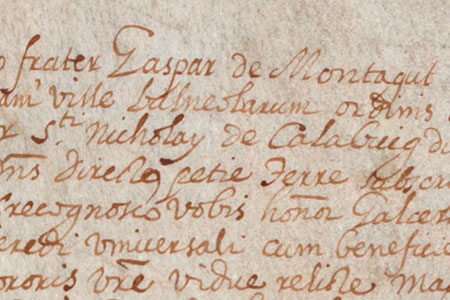 frater Gaspar de Montagut
ville balneolarum ordinis
r s.ti Nicholay de Calabuig
directe petie terre
recognosco vobis honor Galcer
eredi universali cum beneficie
ororis vre vidue relicte Ma